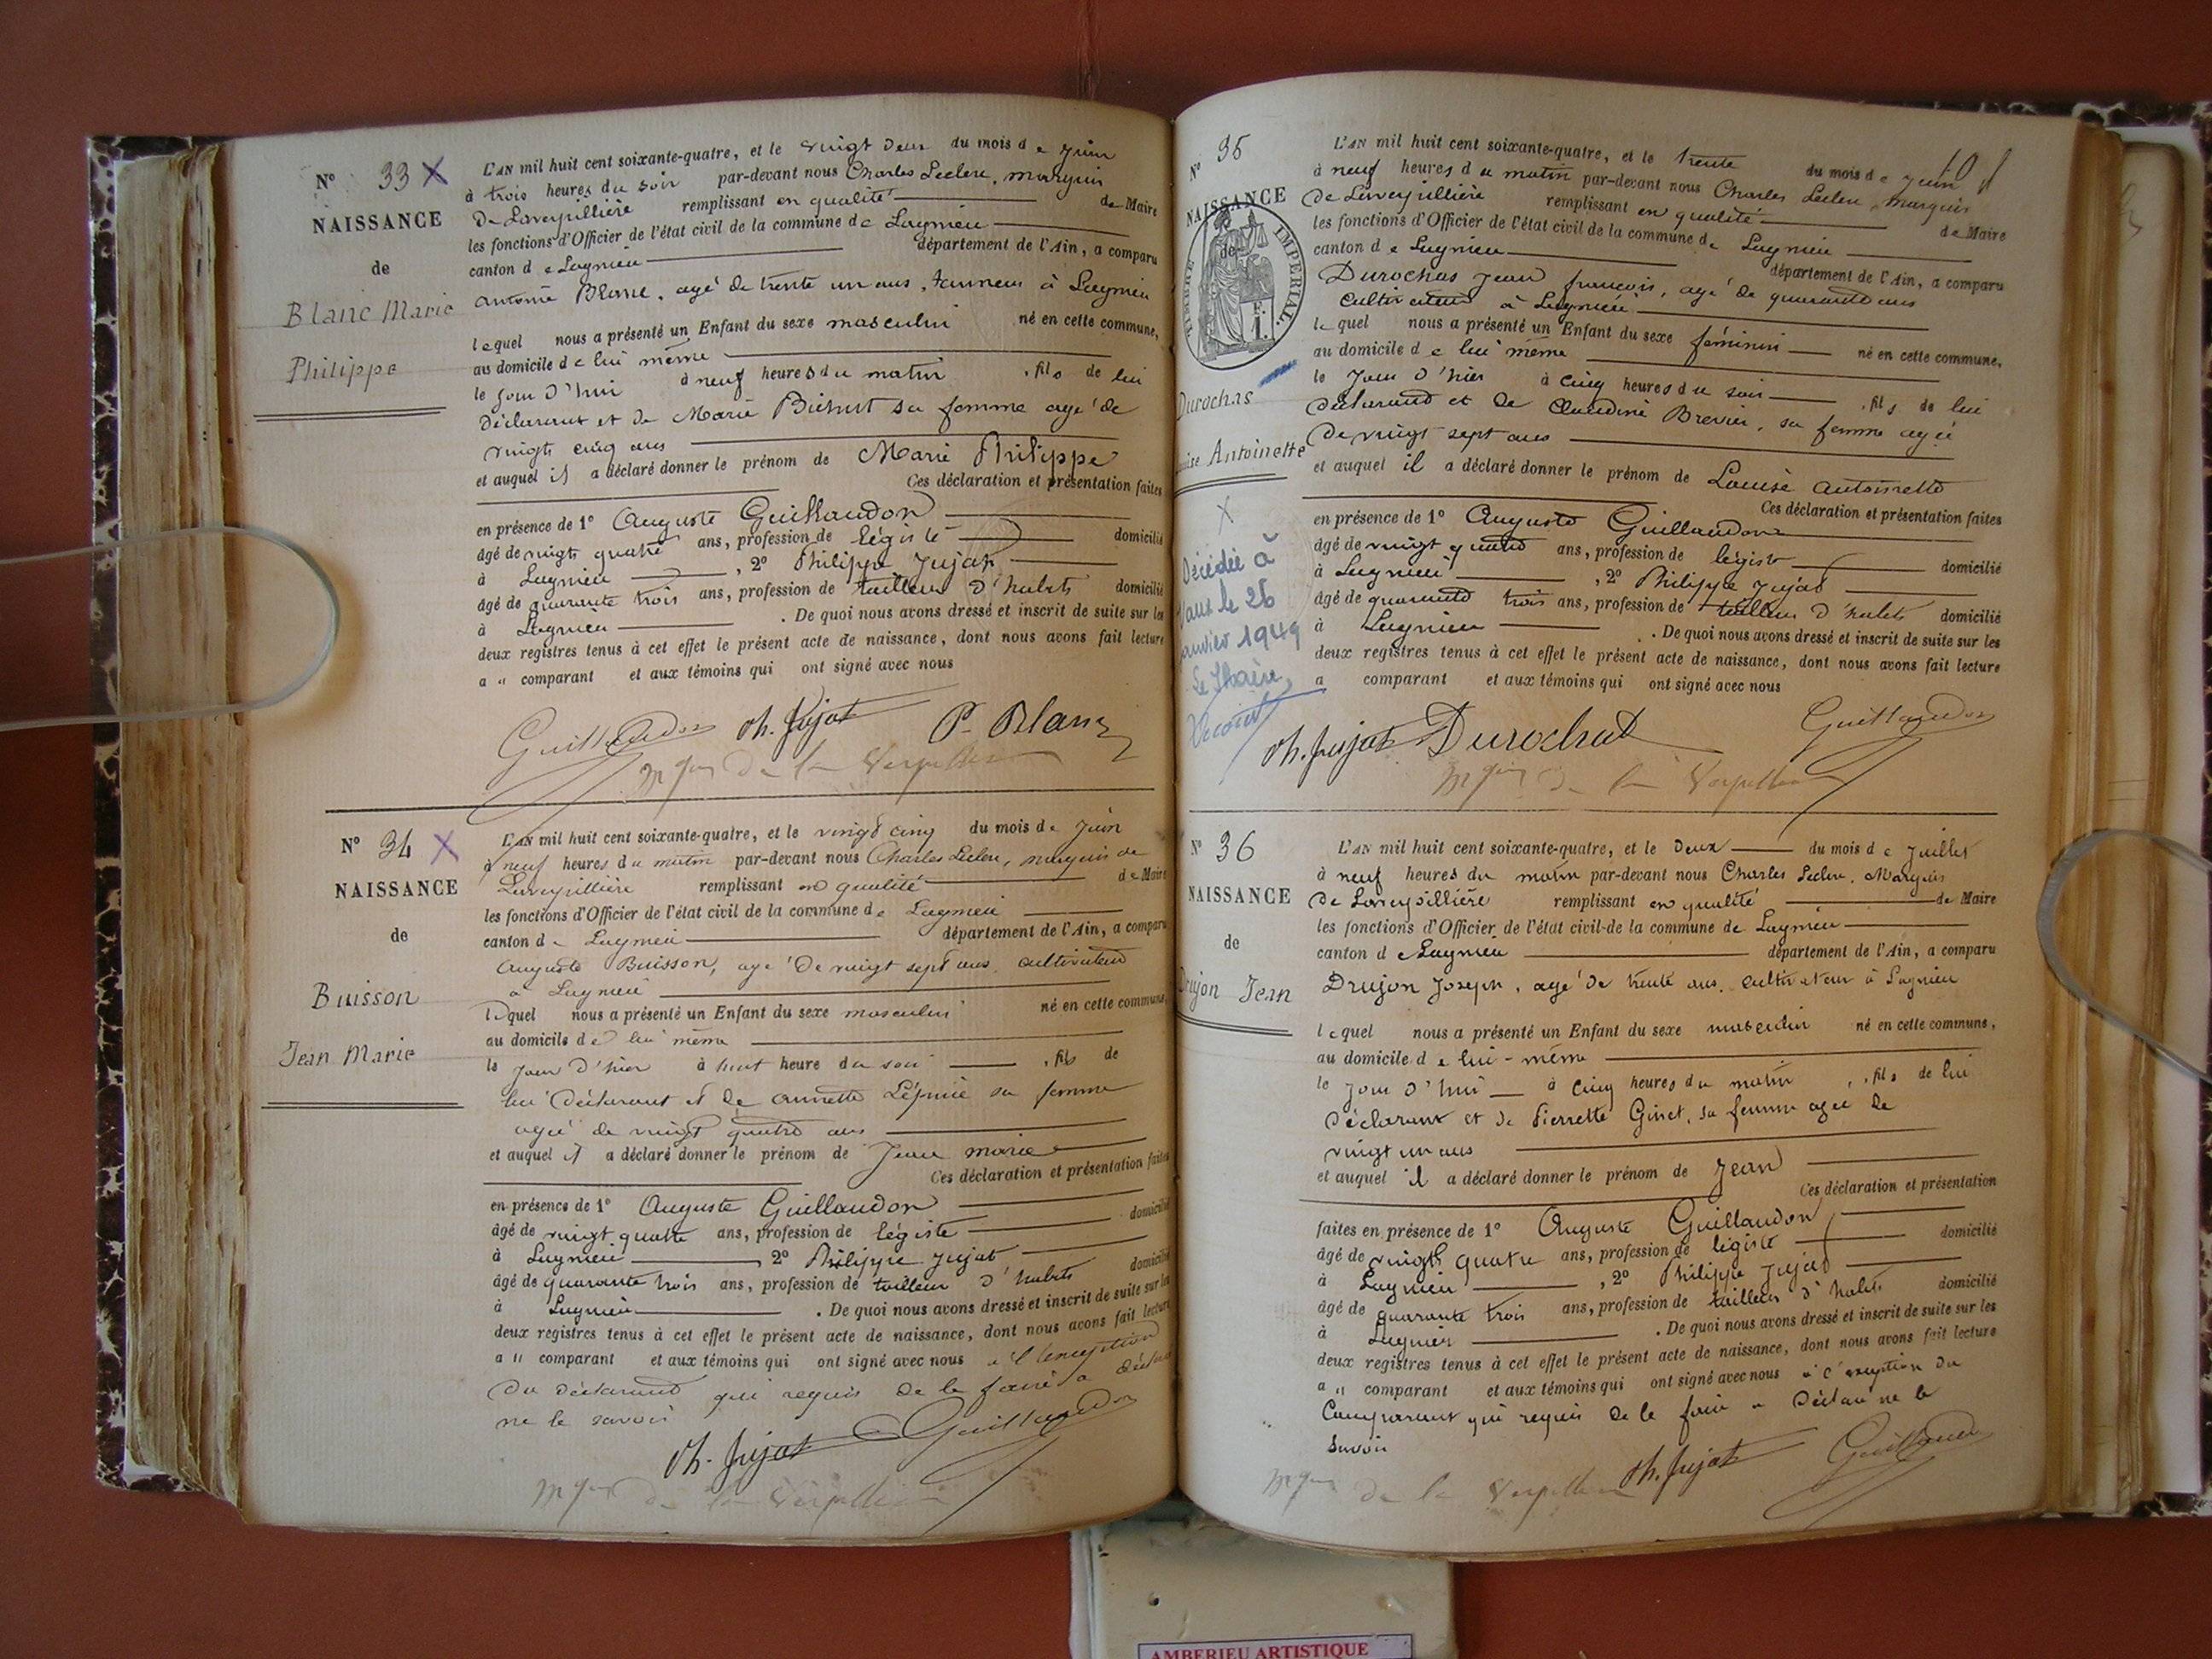 N° 33 X
NAISSANCE
de
Blanc Marie
Philippe
L'AN mil huit cent soixante-quatre, et le vingt deux du mois de juin
à trois heures du soir par-devant nous Charles Leclerc, marquis
de Laverpillière remplissant en qualité de Maire
les fonctions d'Officier de l'état civil de la commune de Lagnieu
canton de Lagnieu département de l'Ain, a comparu
antoine Blanc, agé de trente un ans, tanneur à Lagnieu
lequel nous a présenté un Enfant du sexe masculin né en cette commune,
au domicile de lui même
le jour d'hui à neuf heures du matin, fils de lui
déclarant et de Marie sa femme agé de
vingt cinq ans
et auquel il a déclaré donner le prénom de Marie Philippe
Ces déclaration et présentation faites
en présence de 1° Auguste Guillaudon
âgé de vingt quatre ans, profession de légiste domicilié
à Lagnieu, 2° Philippe Jujat
âgé de quarante trois ans, profession de tailleur d'habits domicilié
à Lagnieu. De quoi nous avons dressé et inscrit de suite sur les
deux registres tenus à cet effet le présent acte de naissance, dont nous avons fait lecture
a u comparant et aux témoins qui ont signé avec nous
Guillaudon Ph. Jujat P. Blanc
Mquis de la Verpillière
N° 34 X
NAISSANCE
de
Buisson
Jean Marie
L'AN mil huit cent soixante-quatre, et le vingt cinq du mois de juin
à neuf heures du matin par-devant nous Charles Leclerc, marquis de
Laverpillière remplissant en qualité de Maire
les fonctions d'Officier de l'état civil de la commune de Lagnieu
canton de Lagnieu département de l'Ain, a comparu
Auguste Buisson, agé de vingt sept ans, cultivateur
à Lagnieu
lequel nous a présenté un Enfant du sexe masculin né en cette commune,
au domicile de lui même
le jour d'hier à huit heure du soir, fils de
lui déclarant et de annette sa femme
agée de vingt quatre ans
et auquel il a déclaré donner le prénom de Jean marie
Ces déclaration et présentation faites
en présence de 1° Auguste Guillaudon
âgé de vingt quatre ans, profession de légiste domicilié
à Lagnieu 2° Philippe Jujat
âgé de quarante trois ans, profession de tailleur d'habits domicilié
à Lagnieu. De quoi nous avons dressé et inscrit de suite sur les
deux registres tenus à cet effet le présent acte de naissance, dont nous avons fait lecture
a u comparant et aux témoins qui ont signé avec nous à l'exception
du déclarant qui requis de le faire a déclaré
ne le savoir
Ph. Jujat Guillaudon
Mquis de la Verpillière
N° 35
NAISSANCE
de
TIMBRE IMPERIAL.
Durochas
Louise Antoinette
X
Décédée à
le 26
janvier 1949
Le Maire,
L'AN mil huit cent soixante-quatre, et le trente du mois de juin
à neuf heures du matin par-devant nous Charles Leclerc, marquis
de Laverpillière remplissant en qualité de Maire
les fonctions d'Officier de l'état civil de la commune de Lagnieu
canton de Lagnieu département de l'Ain, a comparu
Durochas Jean francois, agé de quarante ans
cultivateur à Lagnieu
lequel nous a présenté un Enfant du sexe féminin né en cette commune,
au domicile de lui même
le jour d'hier à cinq heures du soir, fils de lui
déclarant et de Claudine Brevier, sa femme agée
de vingt sept ans
et auquel il a déclaré donner le prénom de Louise antoinette
Ces déclaration et présentation faites
en présence de 1° Auguste Guillaudon
âgé de vingt quatre ans, profession de légiste domicilié
à Lagnieu, 2° Philippe Jujat
âgé de quarante trois ans, profession de tailleur d'habits domicilié
à Lagnieu. De quoi nous avons dressé et inscrit de suite sur les
deux registres tenus à cet effet le présent acte de naissance, dont nous avons fait lecture
a comparant et aux témoins qui ont signé avec nous
Ph. Jujat Durochat Guillaudon
Mquis de la Verpillière
N° 36
NAISSANCE
de
Drujon Jean
L'AN mil huit cent soixante-quatre, et le deux du mois de juillet
à neuf heures du matin par-devant nous Charles Leclerc, Marquis
de Laverpillière remplissant en qualité de Maire
les fonctions d'Officier de l'état civil de la commune de Lagnieu
canton de Lagnieu département de l'Ain, a comparu
Drujon Joseph, agé de trente ans, cultivateur à Lagnieu
lequel nous a présenté un Enfant du sexe masculin né en cette commune,
au domicile de lui-même
le jour d'hui à cinq heures du matin, fils de lui
déclarant et de Pierrette Ginet, sa femme agée de
vingt un ans
et auquel il a déclaré donner le prénom de Jean
Ces déclaration et présentation
faites en présence de 1° Auguste Guillaudon
âgé de vingt quatre ans, profession de légiste domicilié
à Lagnieu, 2° Philippe Jujat
âgé de quarante trois ans, profession de tailleur d'habits domicilié
à Lagnieu. De quoi nous avons dressé et inscrit de suite sur les
deux registres tenus à cet effet le présent acte de naissance, dont nous avons fait lecture
a u comparant et aux témoins qui ont signé avec nous à l'exception du
Comparant qui requis de le faire a déclaré ne le
savoir
Mquis de la Verpillière Ph. Jujat Guillaudon
AMBERIEU ARTISTIQUE